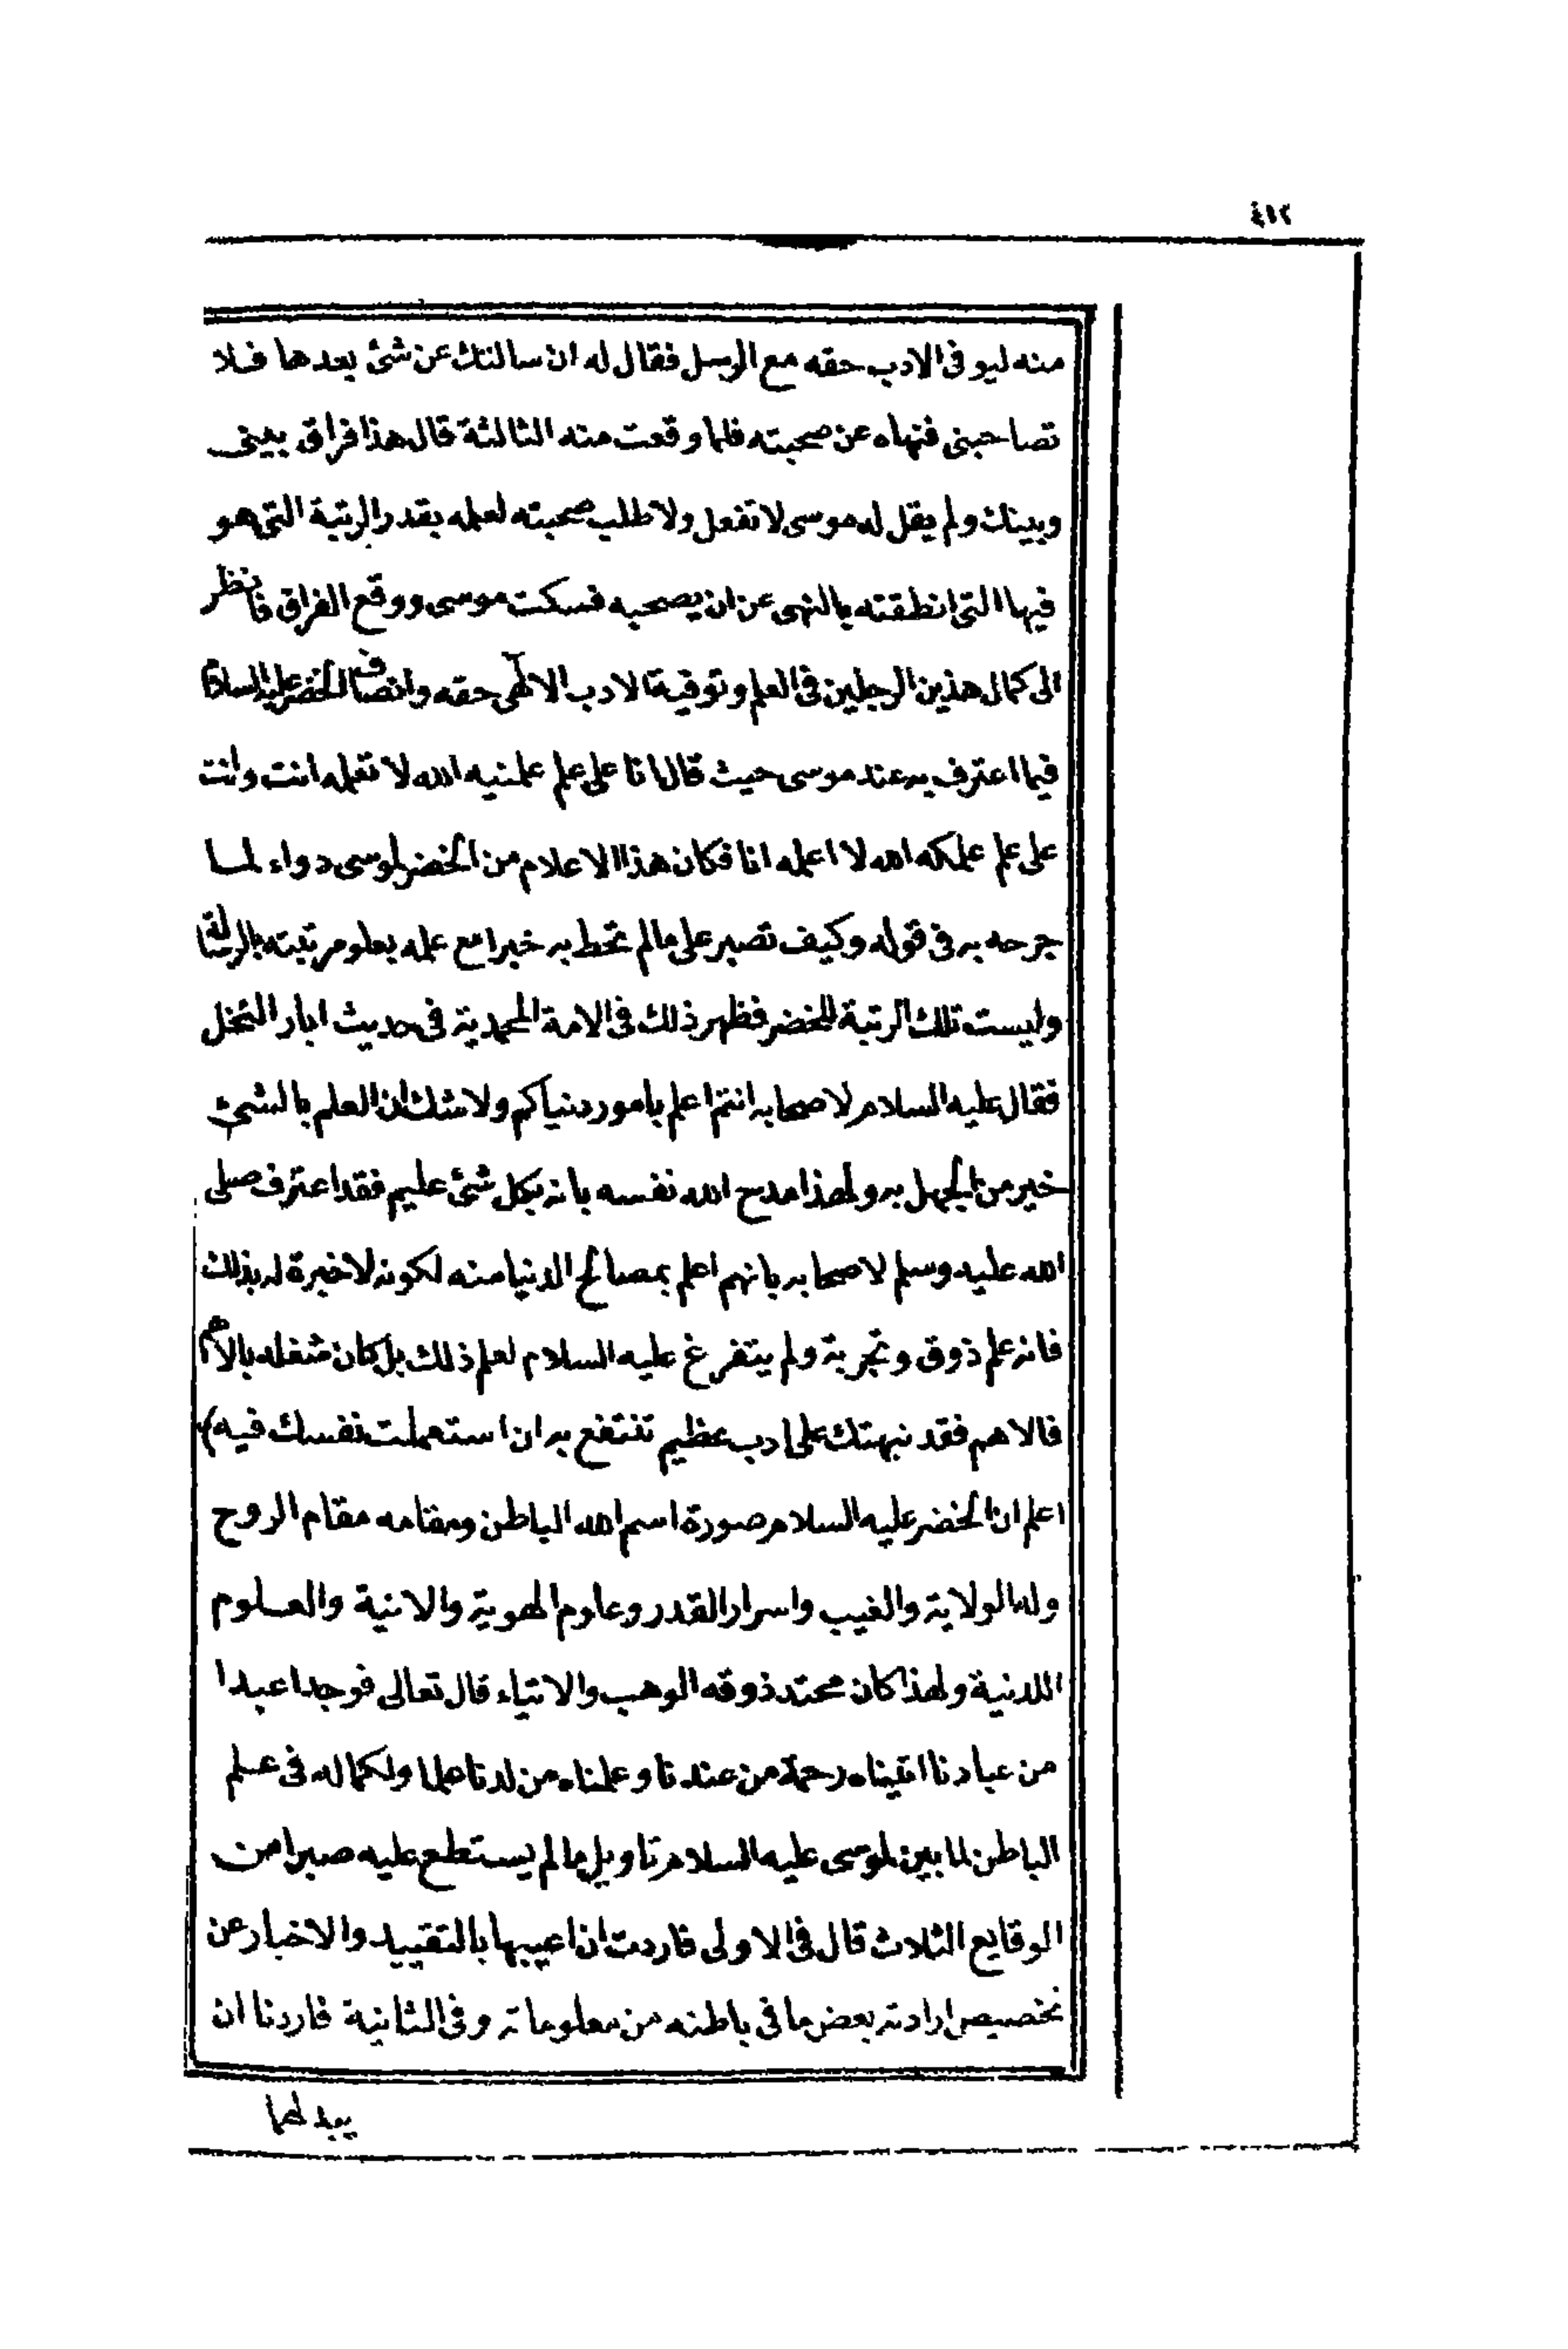 ٤١٢
منه ليوفى الادب حقه مع الرسل فقال له ان سالتك عن شئ بعدها فلا
تصاحبنى فنهاه عن صحبته فلما وقعت منه الثالثة قال هذا فراق بينى
وبينك ولم يقل له موسى لا تفعل ولا طلب صحبته لعلمه بقدر الرتبة التى هو
فيها التى انطقته بالنهى عن ان يصحبه فسكت موسى ووقع الفراق فانظر
الى كمال هذين الرجلين فى العلم وتوفية الادب الالهى حقه وانصاف الخضر عليه السلام
فيما اعترف به عند موسى حيث قال انا على علم علمنيه الله لا تعلمه انت وانت
على علم علمكه الله لا اعلمه انا فكان هذا الاعلام من الخضر لموسى دواء لما
جرحه به فى قوله وكيف تصبر على مالم تحط به خبرا مع علمه بعلو مرتبته بالرسالة
وليست تلك الرتبة للخضر فظهر ذلك فى الامة المحمدية فى حديث ابار النخل
فقال عليه السلام لاصحابه انتم اعلم بامور دنياكم ولا شك ان العلم بالشئ
خير من الجهل به ولهذا مدح الله نفسه بانه بكل شئ عليم فقد اعترف صلى
الله عليه وسلم لاصحابه بانهم اعلم بمصالح الدنيا منه لكونه لا خبرة له بذلك
فانه علم ذوق وتجربة ولم يتفرغ عليه السلام لعلم ذلك بل كان شغله بالاهم
فالاهم فقد نبهتك على ادب عظيم تنتفع به ان استعملت نفسك فيه)
اعلم ان الخضر عليه السلام صورة اسم الله الباطن ومقامه مقام الروح
وله الولاية والغيب واسرار القدر وعلوم الهوية والانية والعلوم
اللدنية ولهذا كان محتد ذوقه الوهب والايتاء قال تعالى فوجدا عبدا
من عبادنا اتيناه رحمة من عندنا وعلمناه من لدنا علما ولكماله فى علم
الباطن لما بين لموسى عليه السلام تاويل مالم يستطع عليه صبرا من
الوقايع الثلاث قال فى الاولى فاردت ان اعيبها بالتقييد والاخبار عن
تخصيص ارادته بعض ما فى باطنه من معلوماته وفى الثانية فاردنا ان
يبدلهما